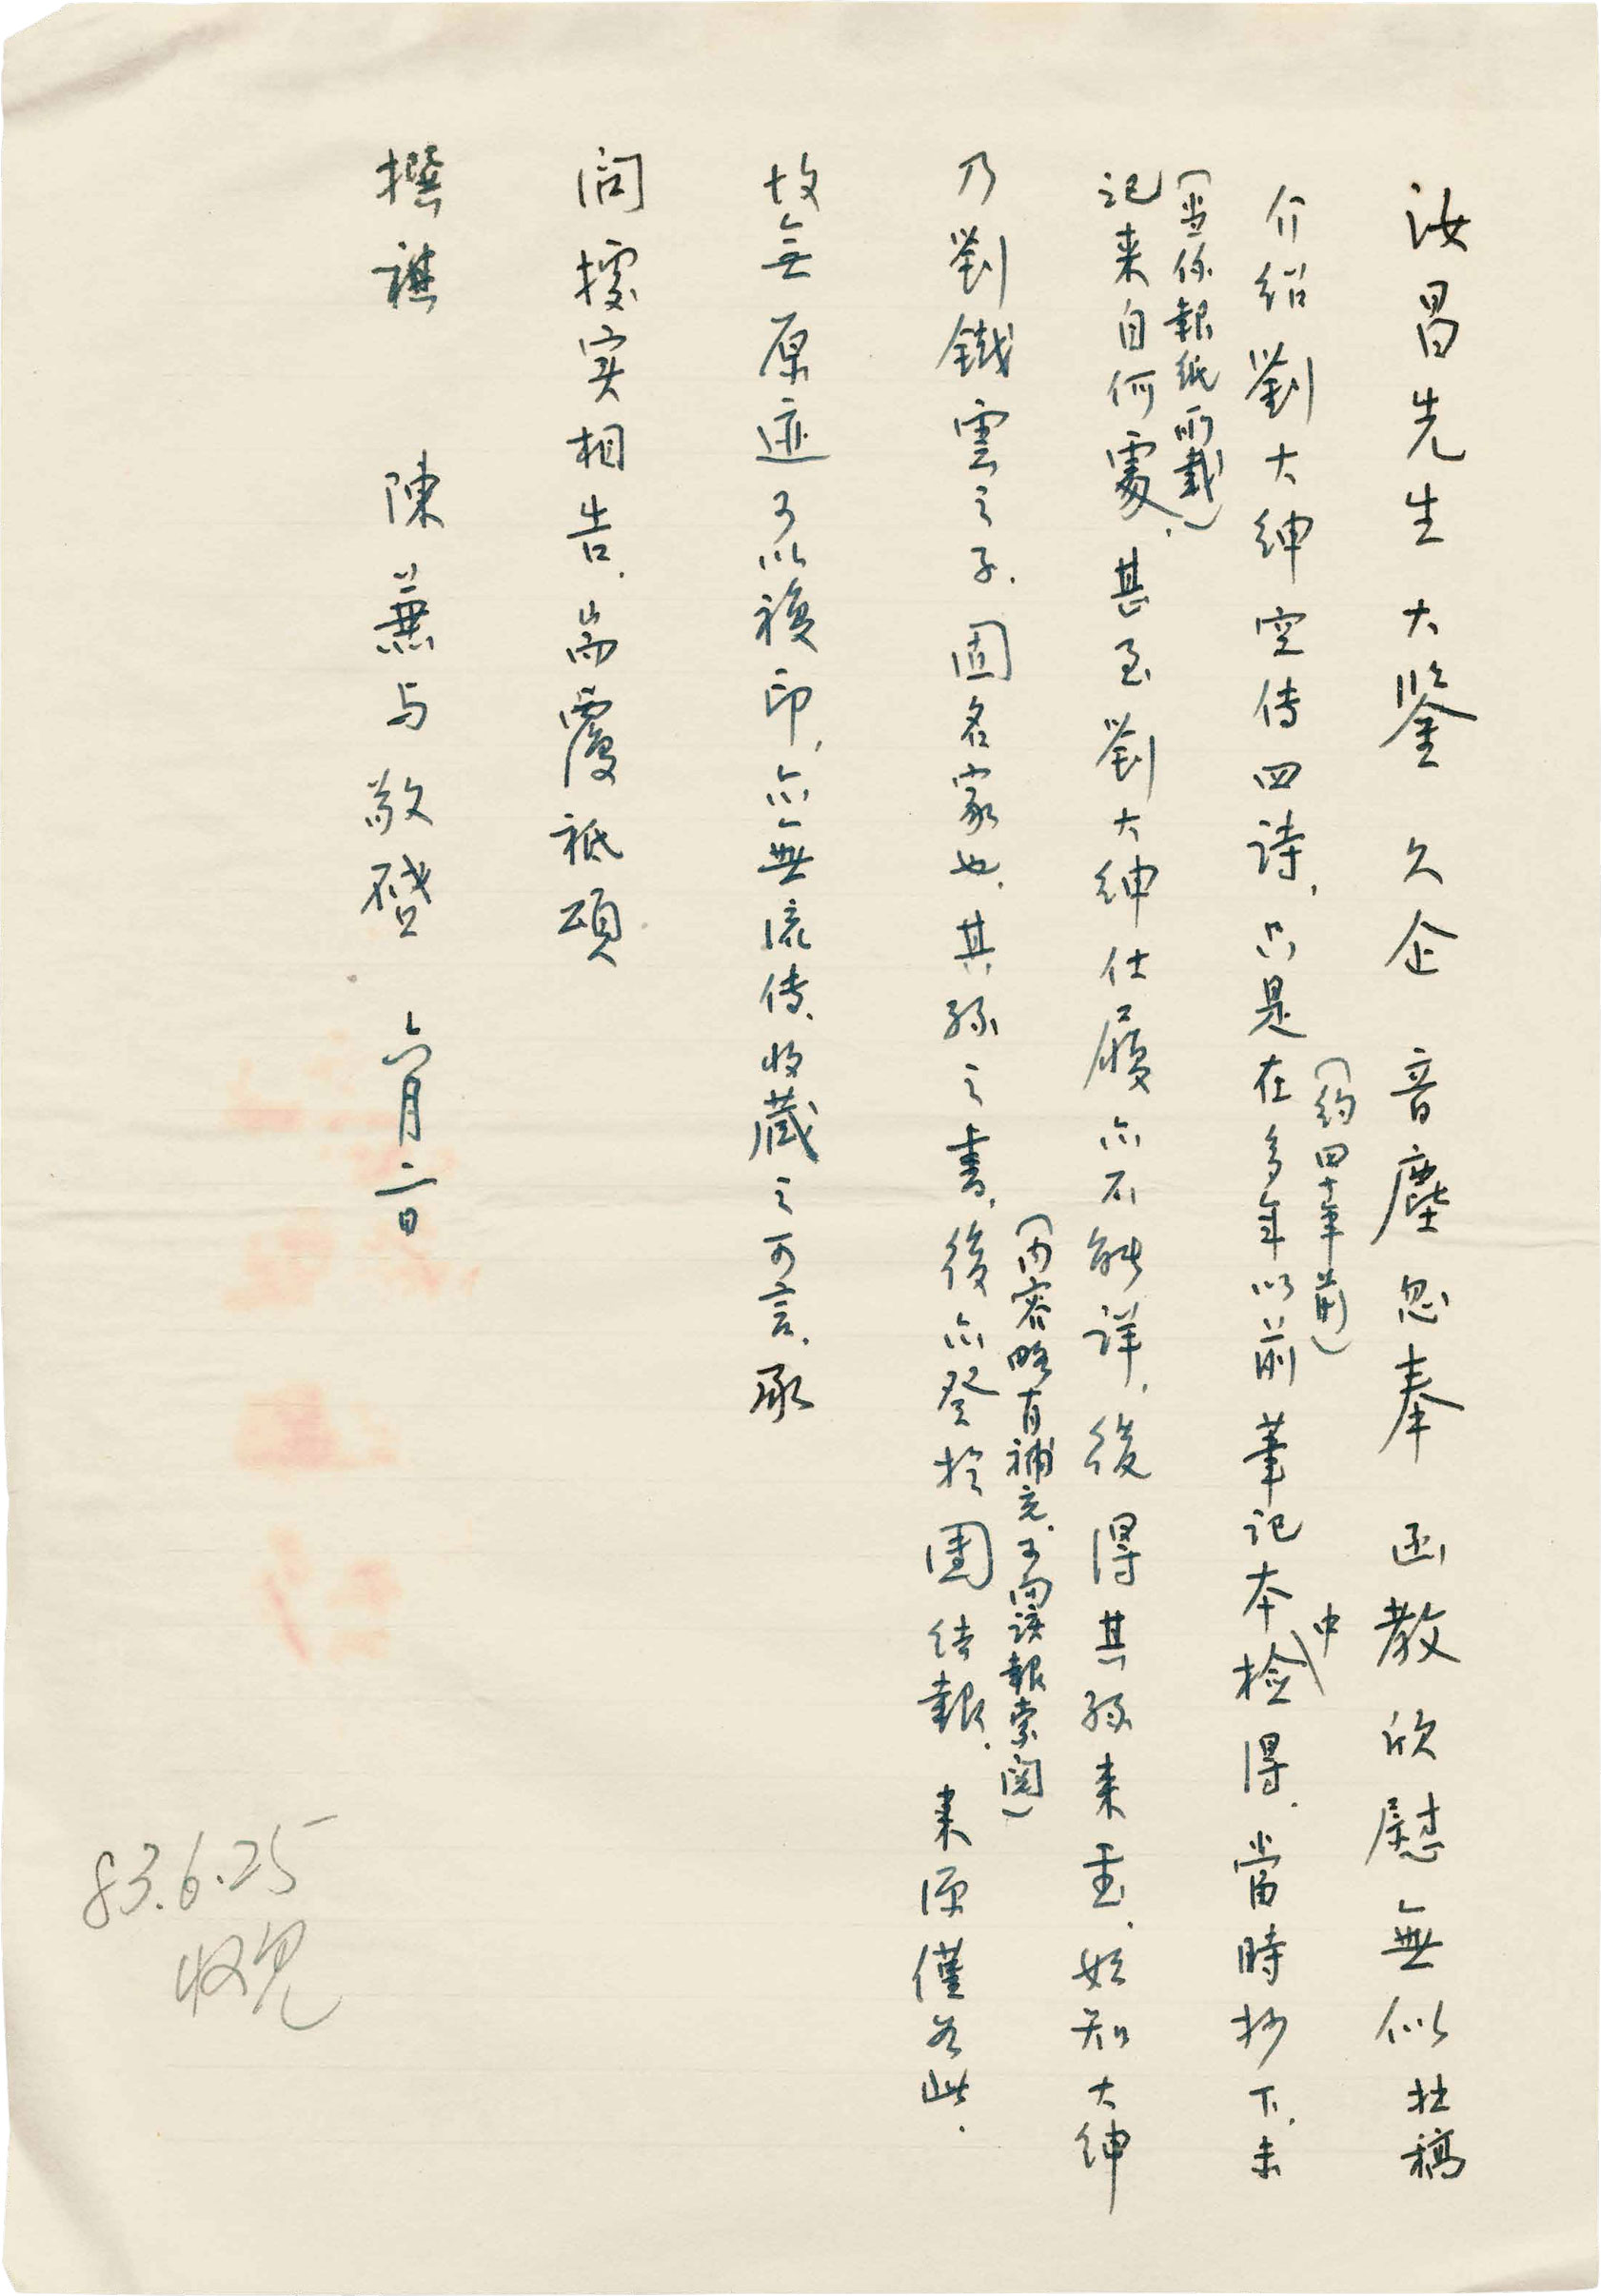 汝昌先生大鑒 久企 音塵忽奉 函教欣慰無似拙稿
介紹劉大紳空传四詩，只是在多年以前（約四十年前）筆記本中检得，當時抄下，未
記来自何處，（当係報紙所載）甚至劉大紳仕履亦不能详，後得其孫来書，始知大紳
乃劉鐵雲之子，固名家也，其孫之書，後亦登於團结報，（内容略有補充，可向该報索閱）来源僅如此．
故無原迹可以複印，亦無流传、收藏之可言，承
问據实相告，耑覆祗頌
撰祺 陳蒹与敬啓 六月二日
83.6.25
收見